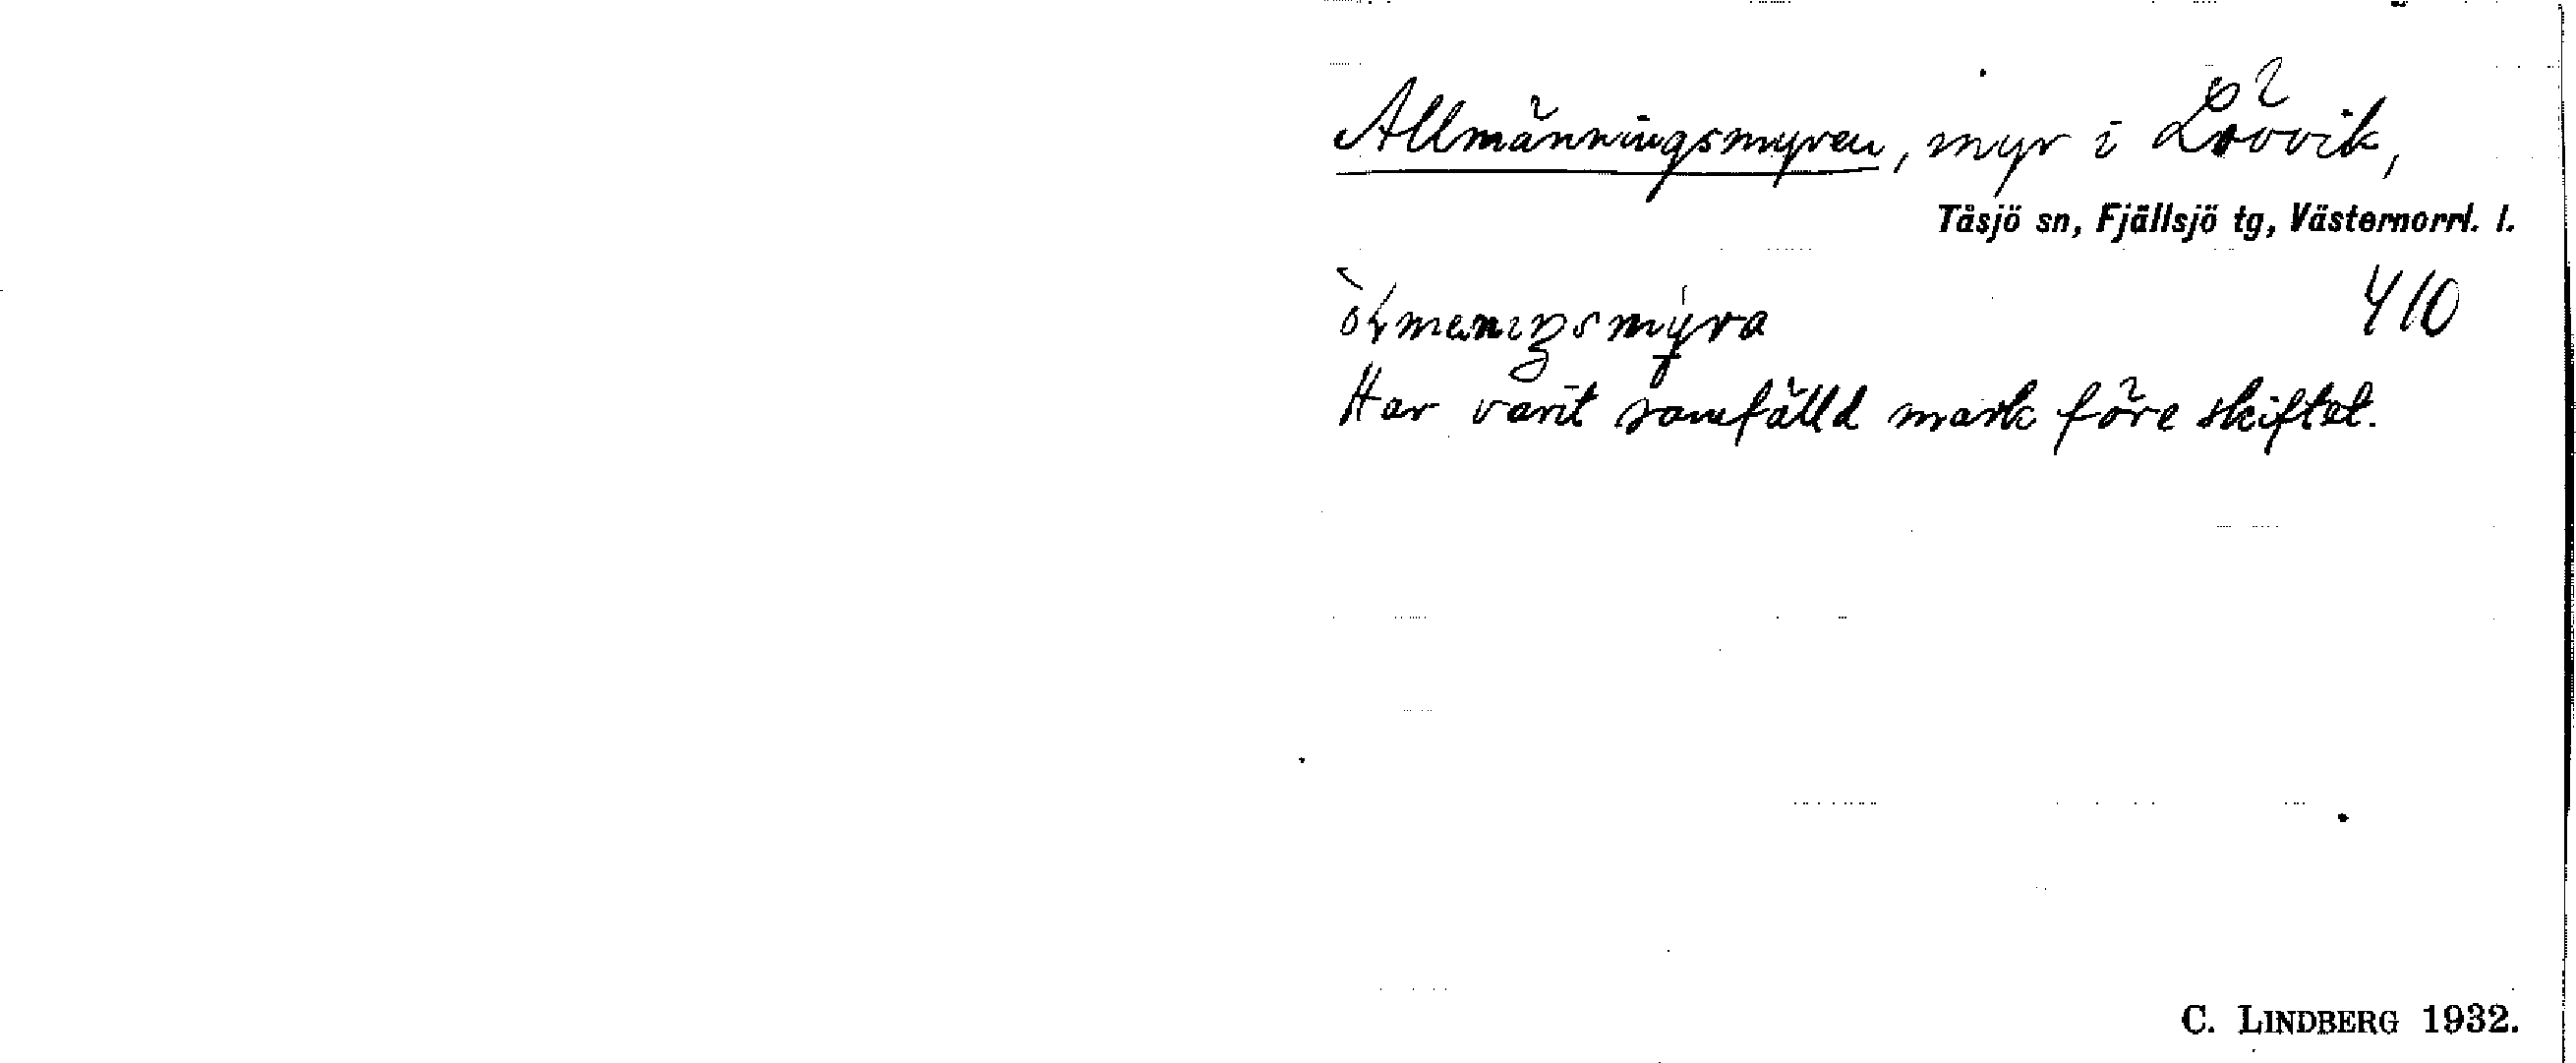 Allmänningsmyren, myr i Lövvik,
Tåsjö sn, Fjällsjö tg, Västernorrl. l.
410
Har varit samfälld mark före skiftet.
C. LINDBERG 1932.